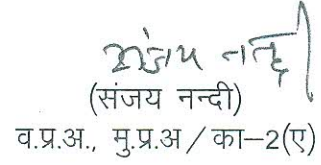 संजय नन्दी
(संजय नन्दी)
व.प्र.अ., मु.प्र.अ / का–2(ए)